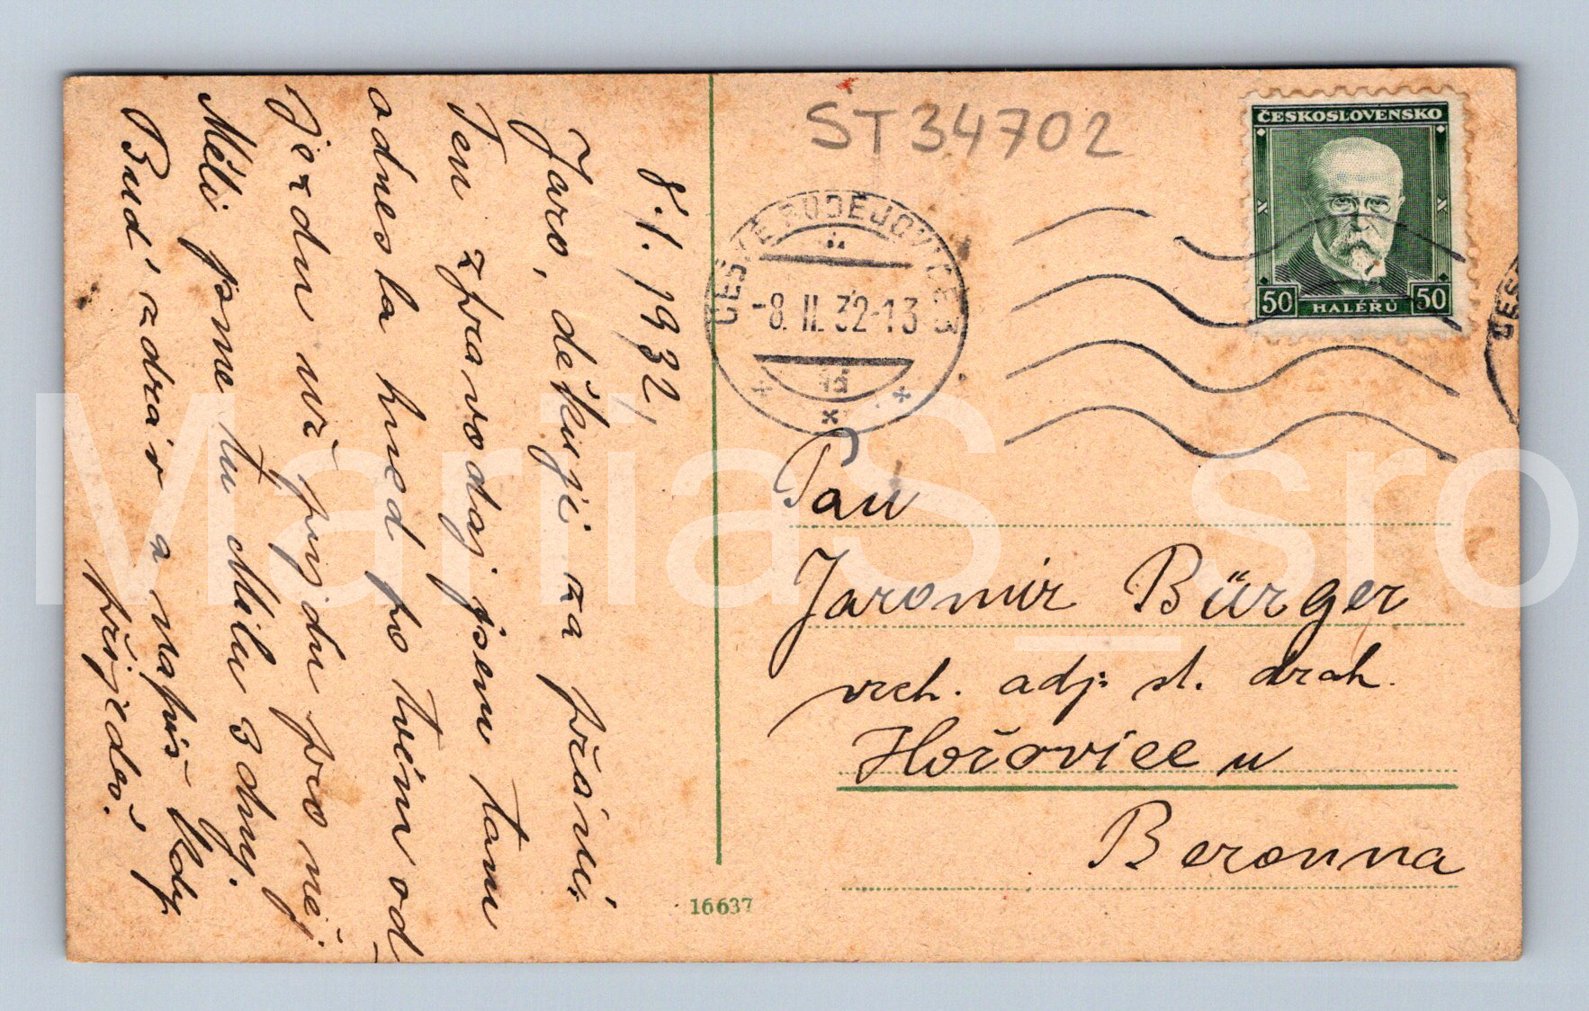 8./I. 1932,
Jaro, děkuji za přání.
Ten zpravodaj jsem tam
odnesla hned po tvém od-
jezdu už přijdu pro něj
Měli jsme tu Mílu 3 dny.
Buď zdráv a napiš kdy
přijedeš.
ST34702
ČESKOSLOVENSKO
50 HALÉŘŮ 50
ČESKÉ BUDĚJOVICE 3
-8. II. 32-13
1d
Pan
Jaromír Bürger
vrch. adj. st. drah.
Hořovice u
Berouna
16637
MariiaS_sro